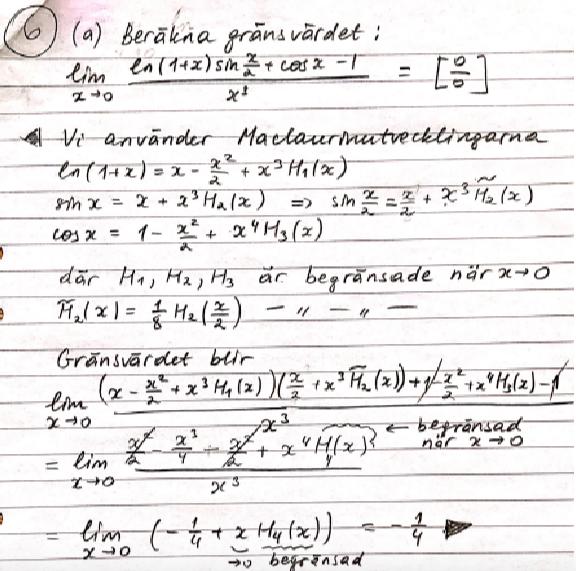 6 (a) Beräkna gränsvärdet:
lim x→0 (ln(1+x) sin x/2 + cos x - 1) / x³ = [0/0]
Vi använder Maclaurinutvecklingarna
ln(1+x) = x - x²/2 + x³H₁(x)
sin x = x + x³H₂(x) ⇒ sin x/2 = x/2 + x³H̃₂(x)
cos x = 1 - x²/2 + x⁴H₃(x)
där H₁, H₂, H₃ är begränsade när x→0
H̃₂(x) = 1/8 H₂(x/2) — " — " —
Gränsvärdet blir
lim x→0 ((x - x²/2 + x³H₁(x))(x/2 + x³H̃₂(x)) + 1 - x²/2 + x⁴H₃(x) - 1) / x³
= lim x→0 (x²/2 - x³/4 - x²/2 + x⁴H₄(x)) / x³ ← begränsad när x→0
= lim x→0 (-1/4 + x H₄(x)) = -1/4
→0 begränsad